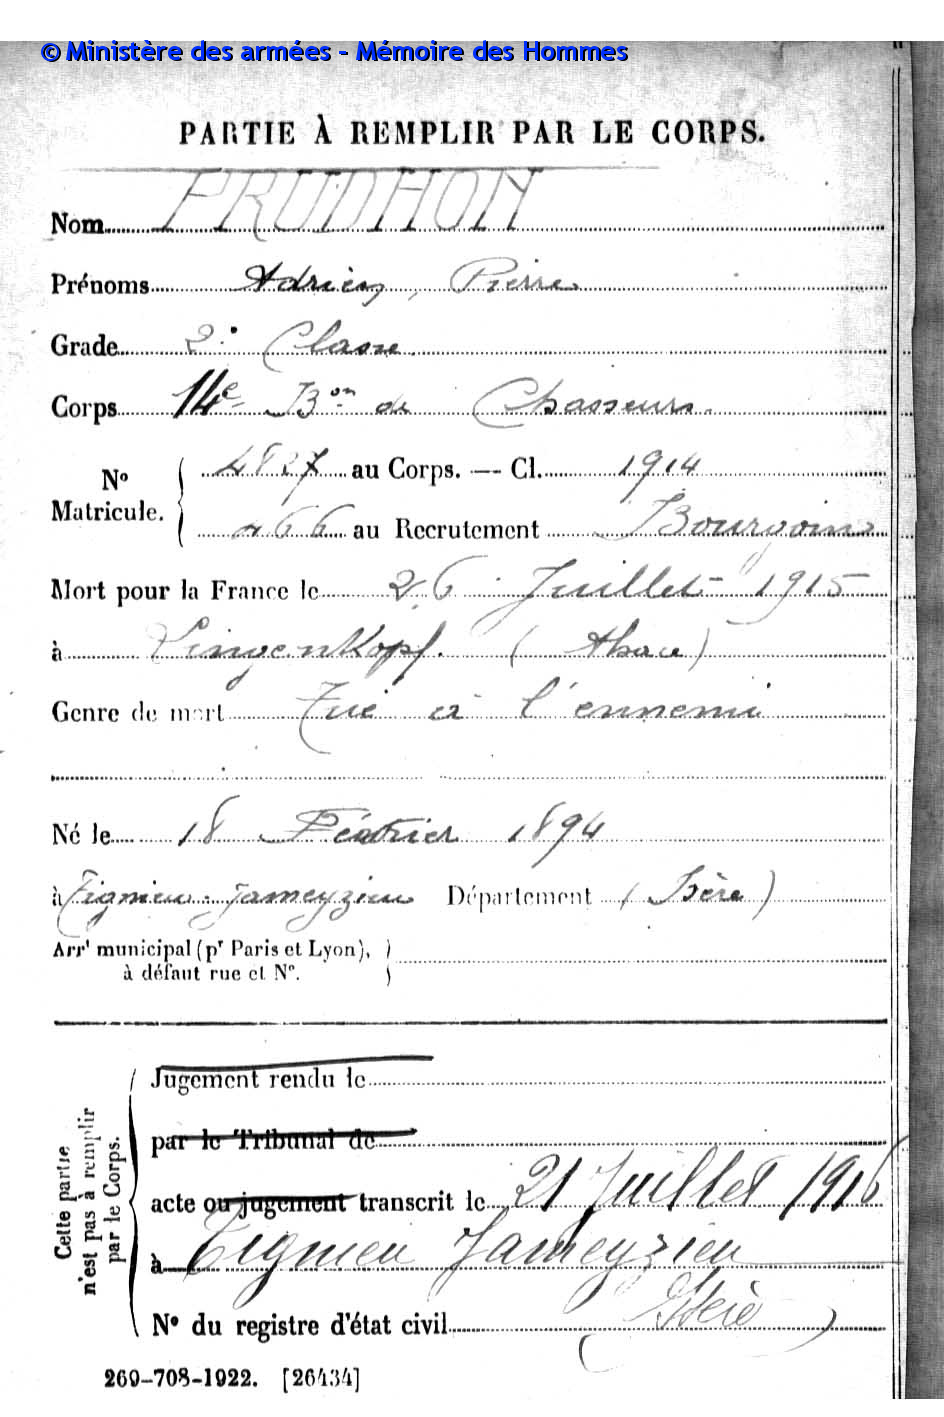 © Ministère des armées - Mémoire des Hommes
PARTIE À REMPLIR PAR LE CORPS.
Nom PRUDHON
Prénoms Adrien, Pierre
Grade 2e Classe
Corps 14e Bon de Chasseurs
No Matricule. 4827 au Corps. — Cl. 1914
466 au Recrutement Bourgoin
Mort pour la France le 26 Juillet 1915
à Lingenkopf. (Alsace)
Genre de mort Tué à l'ennemi
Né le 18 Février 1894
à Tignieu-Jameyzieu Département (Isère)
Arrt municipal (pr Paris et Lyon),
à défaut rue et No.
Cette partie n'est pas à remplir par le Corps.
Jugement rendu le
par le Tribunal de
acte ou jugement transcrit le 21 Juillet 1916
à Tignieu Jameyzieu
(Isère)
No du registre d'état civil
269-708-1922. [26434]